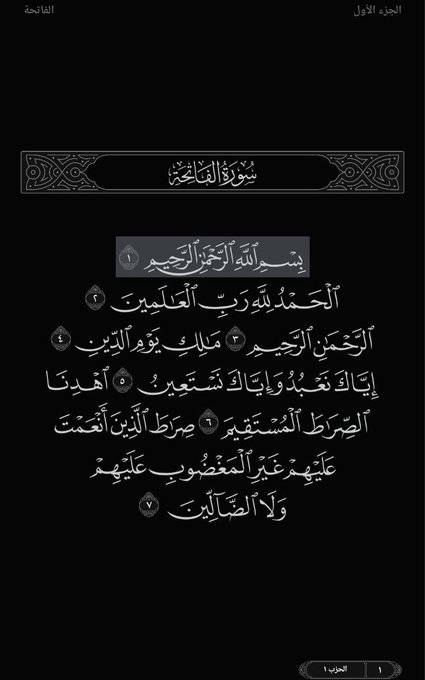 الجزء الأول
الفاتحة
سُورَةُ الفَاتِحَةِ
بِسۡمِ ٱللَّهِ ٱلرَّحۡمَٰنِ ٱلرَّحِيمِ ١
ٱلۡحَمۡدُ لِلَّهِ رَبِّ ٱلۡعَٰلَمِينَ ٢
ٱلرَّحۡمَٰنِ ٱلرَّحِيمِ ٣ مَٰلِكِ يَوۡمِ ٱلدِّينِ ٤
إِيَّاكَ نَعۡبُدُ وَإِيَّاكَ نَسۡتَعِينُ ٥ ٱهۡدِنَا
ٱلصِّرَٰطَ ٱلۡمُسۡتَقِيمَ ٦ صِرَٰطَ ٱلَّذِينَ أَنۡعَمۡتَ
عَلَيۡهِمۡ غَيۡرِ ٱلۡمَغۡضُوبِ عَلَيۡهِمۡ
وَلَا ٱلضَّآلِّينَ ٧
١
الحزب ١